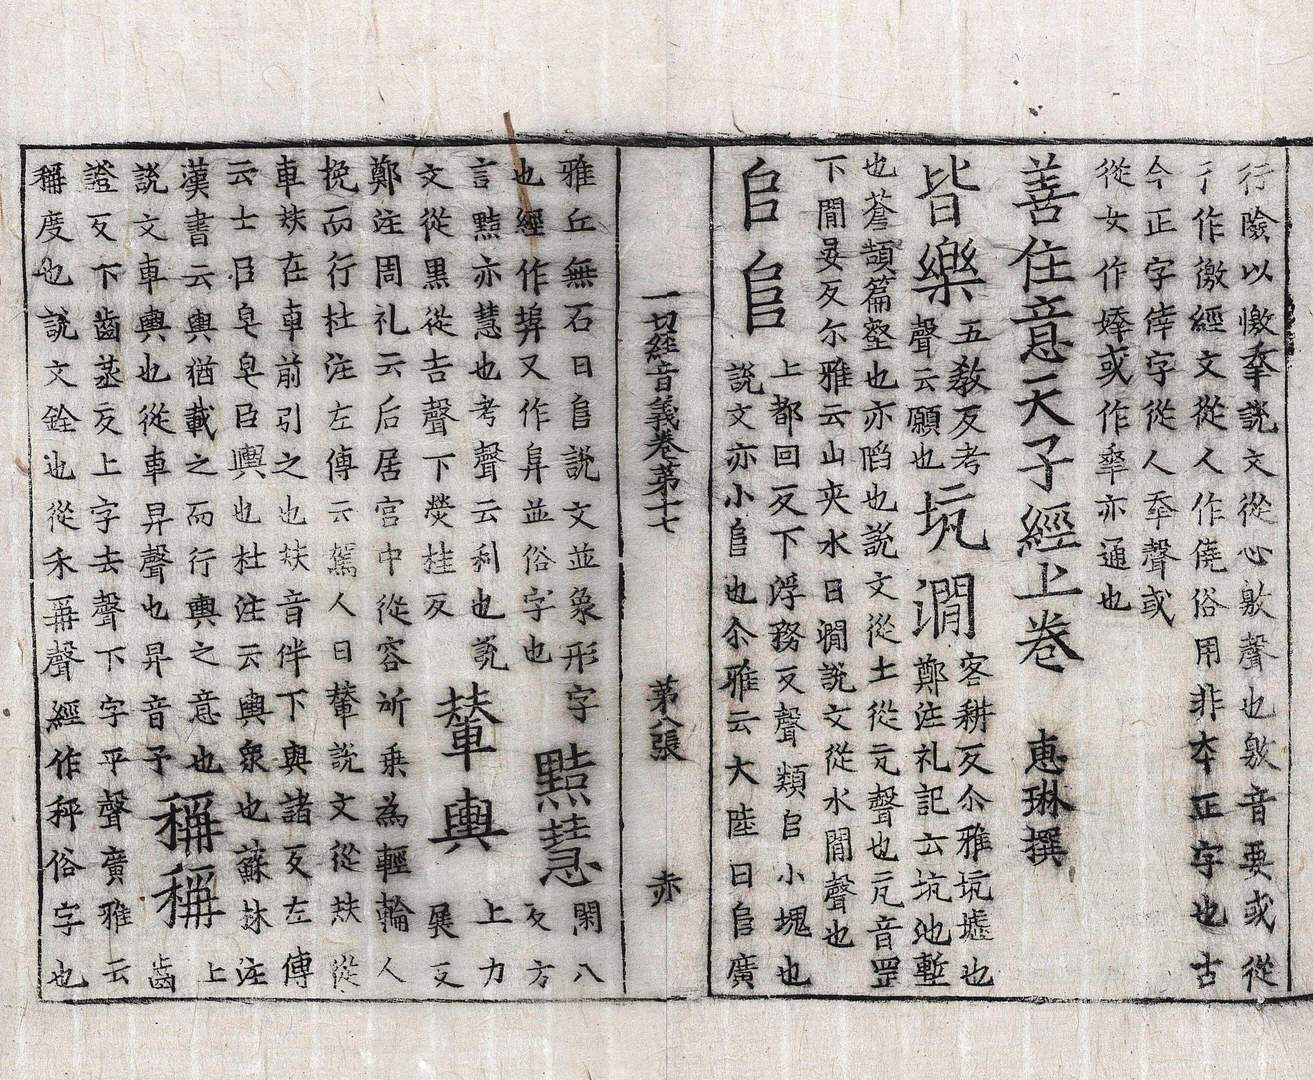 行險以憿㚔說文從心敫聲也敫音要或從
彳作徼經文從人作僥俗用非本正字也古
今正字倖字從人㚔聲或
從女作婞或作㚔亦通也
善住意天子經上卷 惠琳撰
皆樂
五敎反考
聲云願也
坑澗
客耕反尒雅坑墟也
鄭注礼記云坑池塹
也蒼頡篇壑也亦陷也說文從土從亢聲也亢音罡
下閒晏反尔雅云山夾水曰澗說文從水閒聲也
𠂤𨸏
上都回反下浮務反聲類𠂤小塊也
說文亦小𨸏也尒雅云大陸曰𨸏廣
一切經音義卷第十七 第八張 赤
雅丘無石曰𨸏說文並象形字
也經作埠又作阜並俗字也
黠慧
閑八
反方
言黠亦慧也考聲云利也說
文從黑從吉聲下熒桂反
輦輿
上力
展反
鄭注周礼云后居宫中從容所乗為輕輪人
挽而行杜注左傳云駕人曰輦說文從㚘從
車㚘在車前引之也㚘音伴下輿諸反左傳
云士臣皂皂臣輿也杜注云輿衆也蘇林注
漢書云輿猶載之而行輿之意也
稱稱
上
齒
說文車輿也從車舁聲也舁音予
證反下齒蒸反上字去聲下字平聲廣雅云
稱度也說文銓也從禾爯聲經作秤俗字也